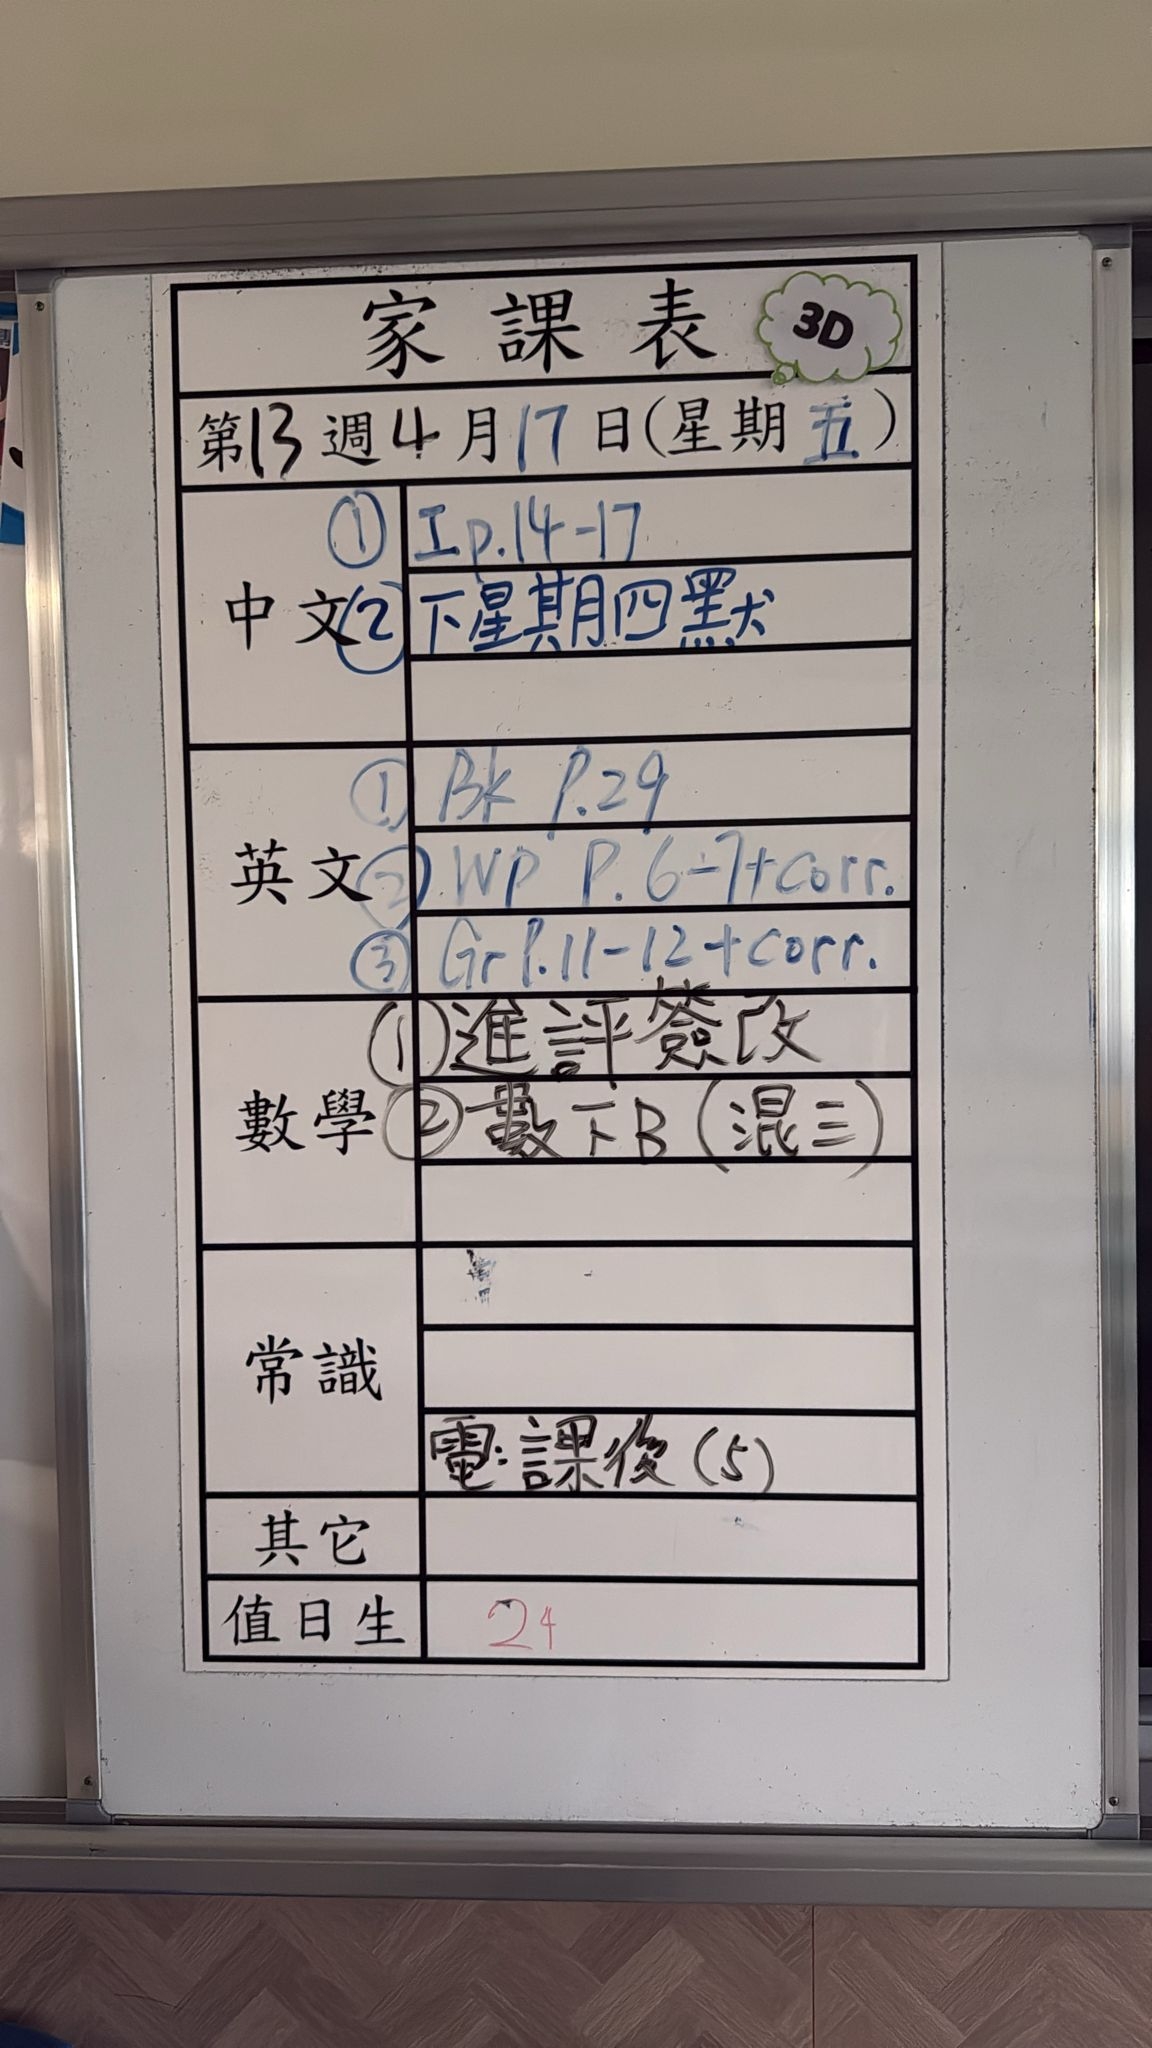 家課表 3D
第13週4月17日(星期五)
中文
① 工p.14-17
② 下星期四默
英文
① Bk P.29
② WP P.6-7+corr.
③ Gr P.11-12+corr.
數學
① 進評簽改
② 數下B(混三)
常識
電:課後(5)
其它
值日生 24